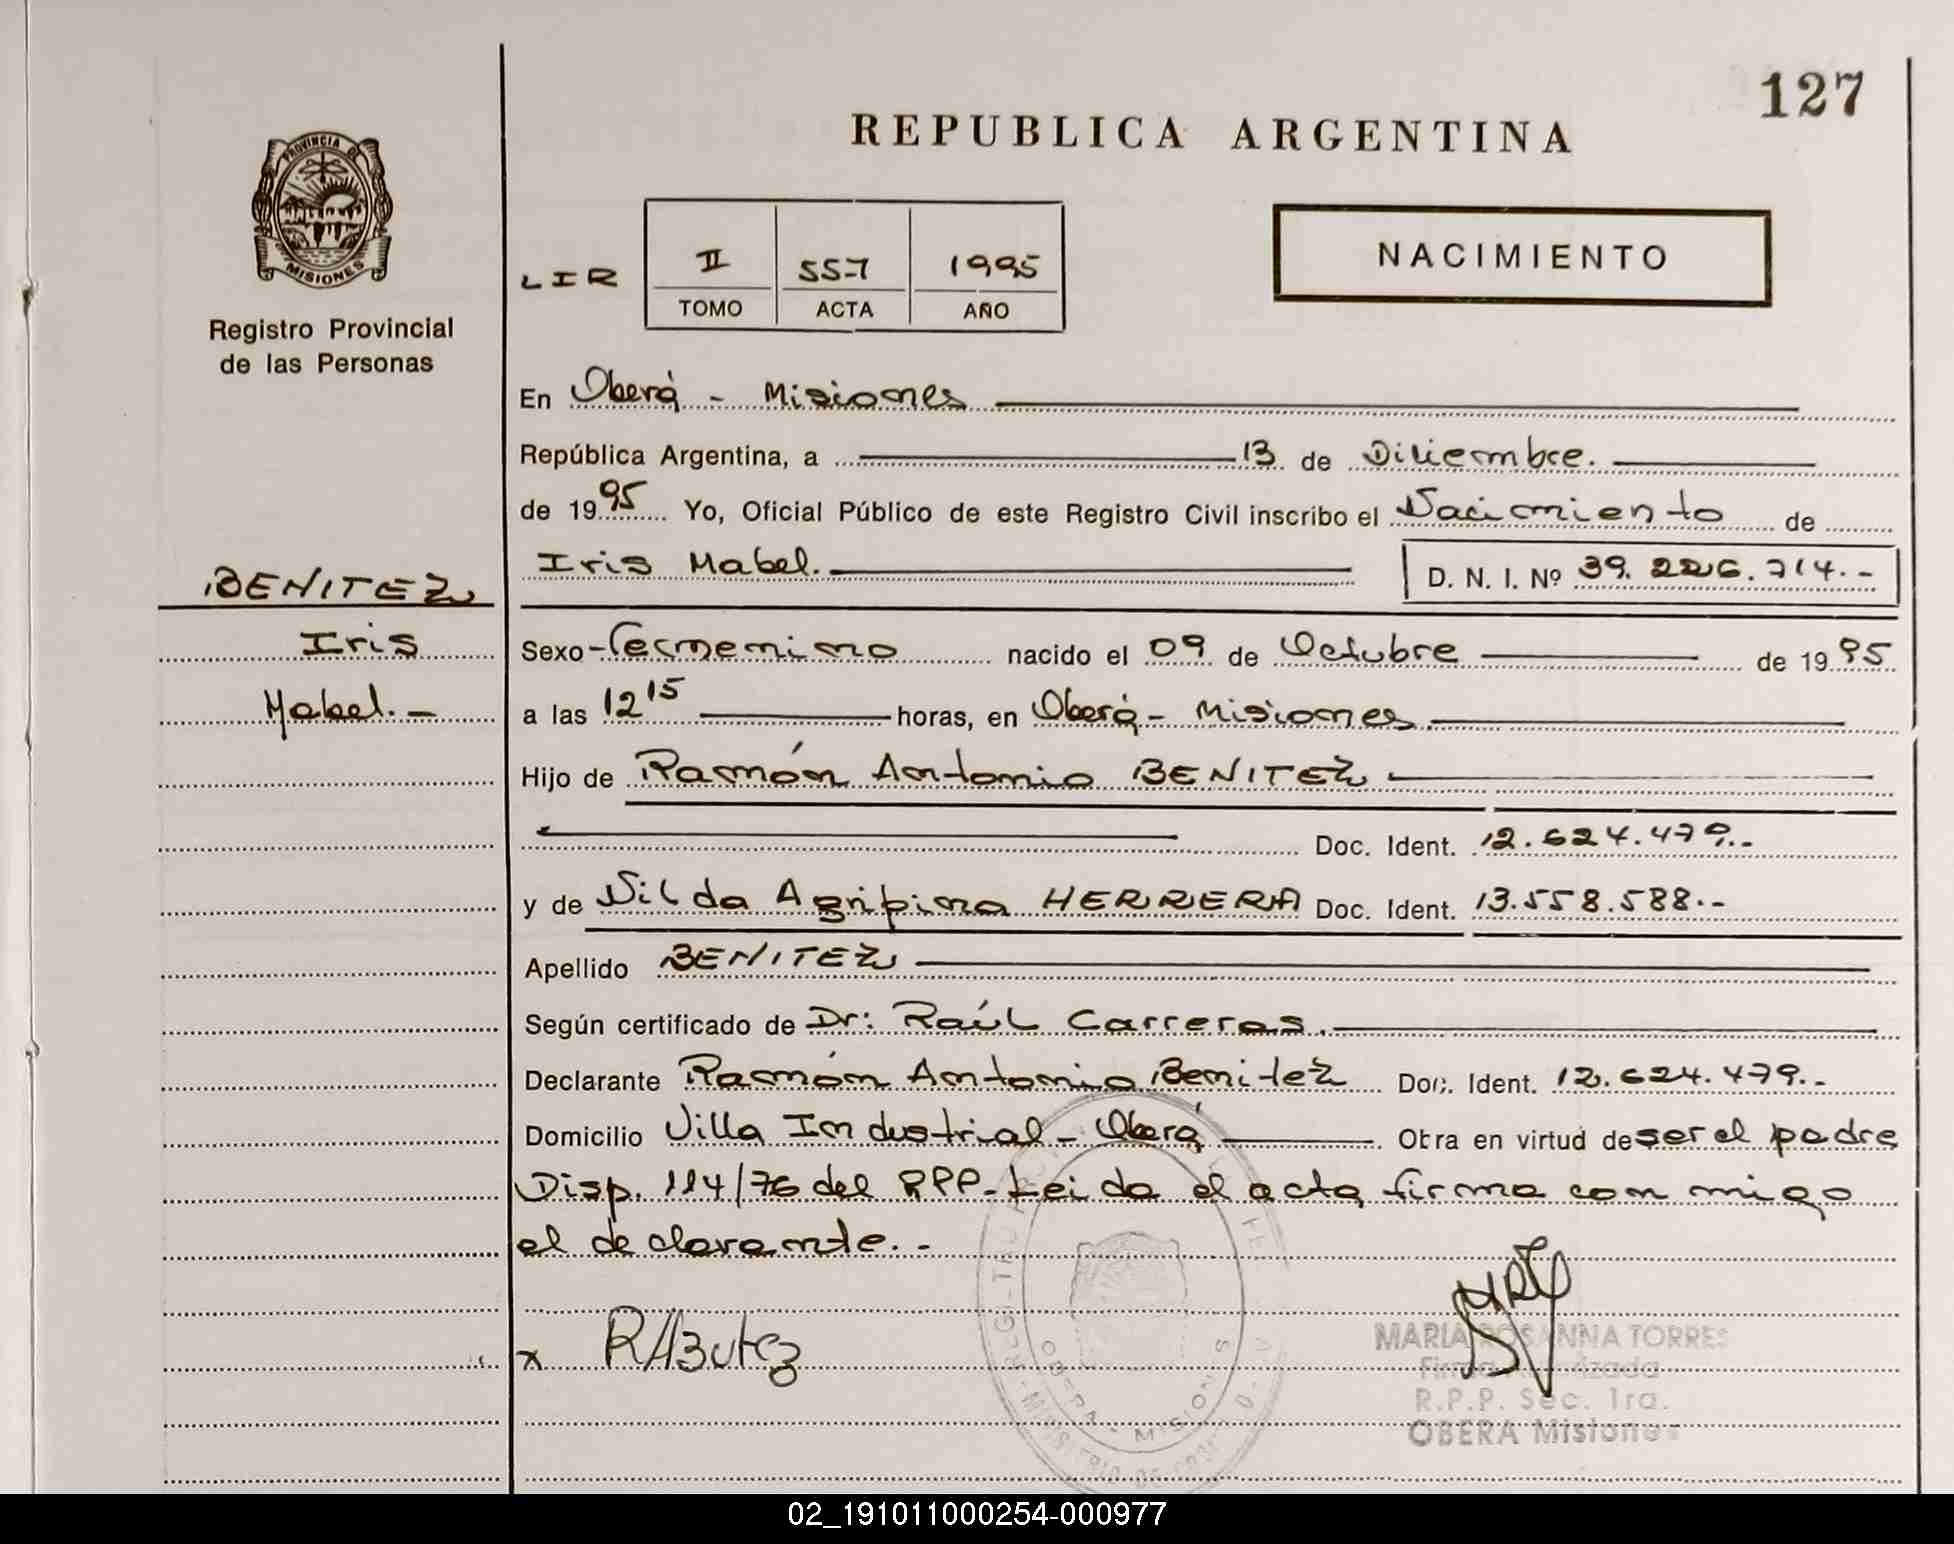 127
REPUBLICA ARGENTINA
PROVINCIA DE
MISIONES
Registro Provincial
de las Personas
NACIMIENTO
LIR
II 557 1995
TOMO ACTA AÑO
En Oberá - Misiones
República Argentina, a 13 de Diciembre.
de 1995 Yo, Oficial Público de este Registro Civil inscribo el Nacimiento de
Iris Mabel. D. N. I. Nº 39.226.714.-
BENITEZ
Iris
Mabel.-
Sexo - Femenino nacido el 09 de Octubre de 1995
a las 12 15 horas, en Oberá - Misiones.
Hijo de Ramón Antonio BENITEZ
Doc. Ident. 12.624.479.-
y de Nilda Agripina HERRERA Doc. Ident. 13.558.588.-
Apellido BENITEZ
Según certificado de Dr: Raúl Carreras.
Declarante Ramón Antonio Benitez Doc. Ident. 12.624.479.-
Domicilio Villa Industrial - Oberá. Obra en virtud de ser el padre
Disp. 114/76 del RPP. Leida el acta firma con migo
el declarante.-
x
MARIA ROSANNA TORRES
Firma Autorizada
R.P.P. Sec. 1ra.
OBERA Misiones
OBERA - MISIONES
02_191011000254-000977